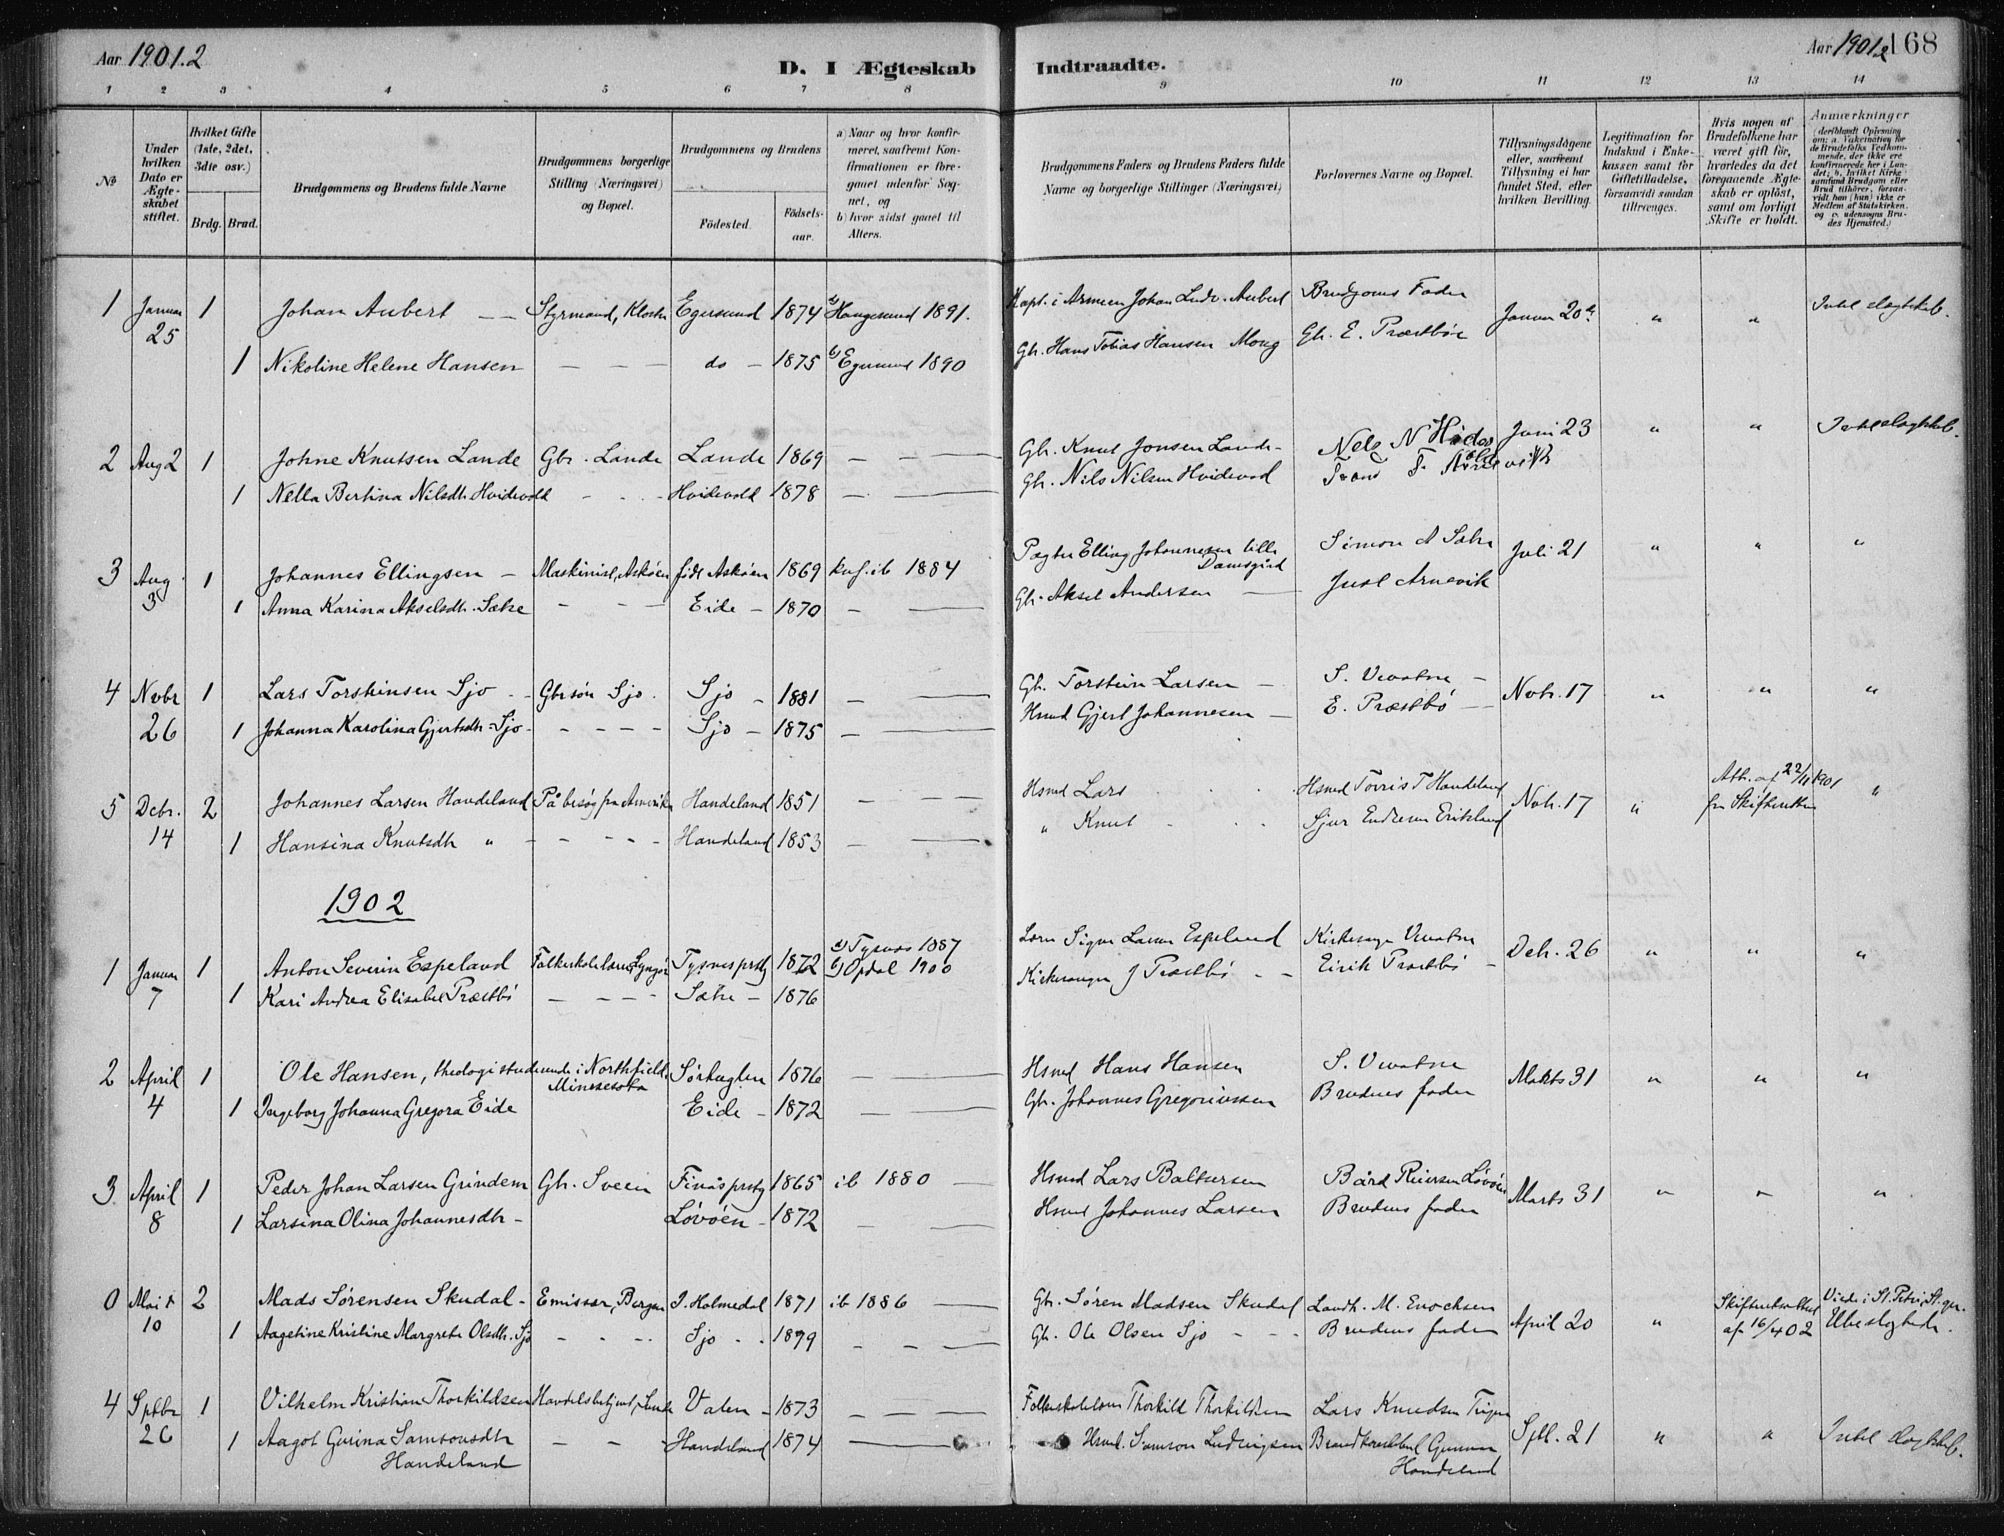 Aar 1901.2
D. I Ægteskab
Indtraadte.
Aar 1901.2
168
1 2 3 4 5 6 7 8 9 10 11 12 13 14
No
Under hvilken Dato er Ægteskabet stiftet.
Hvilket Gifte (1ste, 2det, 3dte osv.)
Brdg. Brud.
Brudgommens og Brudens fulde Navne
Brudgommens borgerlige Stilling (Næringsvei) og Bopæl.
Brudgommens og Brudens
Födested.
Födselsaar.
a) Naar og hvor konfirmeret, saafremt Konfirmationen er foregaaet udenfor Sognet, og
b) hvor sidst gaaet til Alters.
Brudgommens Faders og Brudens Faders fulde Navne og borgerlige Stillinger (Næringsvei)
Forlovernes Navne og Bopæl.
Tillysningsdagene eller, saafremt Tillysning ei har fundet Sted, efter hvilken Bevilling.
Legitimation for Indskud i Enkekassen samt for Giftetilladelse, forsaavidt saadan tiltrænges.
Hvis nogen af Brudefolkene har været gift för, hvorledes da det foregaaende Ægteskab er oplöst, samt om lovligt Skifte er holdt.
Anmærkninger (deriblandt Oplysning om: a. Vakcination for de Brudefolks Vedkommende, der ikke ere konfirmerede her i Landet; b. hvilket Kirkesamfund Brudgom eller Brud tilhörer, forsaavidt han (hun) ikke er Medlem af Statskirken, og c. udensogns Brudes Hjemsted.)
1 Januar 1 Johan Aubert — Styrmand, Egersund 1874 b) Haugesund 1891. Kapt. i Armeen Johan Ludv. Aubert Brudgoms Fader Januar 20de " "
25 1 Nikoline Helene Hansen — — — do — 1875 b) Egersund 1890 Gbr. Hans Tobias Hansen Mong Gbr. E. Præstbøe
2 Aug 2 1 Johne Knutsen Lande Gbr. Lande Lande 1869 — — — Gbr. Knut Jonsen Lande Juni 23 " "
1 Nella Bertina Nilsdtr. Hvidevold — Hvidevold 1878 — — Gbr. Nils Nilsen Hvidevold
3 Aug 1 Johannes Ellingsen — Maskinist, Askøen født Askøen 1869 knf. ib 1884 Pagter Elling Johannesen lille Simon A Sætre Juli 21 " " "
Damsgård
3 1 Anna Karina Akselsdtr. Sætre — — Eide — 1870 — — Gbr. Aksel Andersen — Just Arnevik
4 Novbr 1 Lars Torsteinsen Sjo Gbr.søn Sjo. Sjo — 1881 — — Gbr. Torstein Larsen — S. Vevatne — Novbr. 17 " " "
26 1 Johanna Karolina Gjertsdtr. Sjo — — — Sjo — 1875 — — Hsmd Gjert Johannesen — E. Præstbø —
5 Debr. 2 Johannes Larsen Handeland På besøg fra Amerika Handeland 1851 — — — Hsmd Lars Hsmd Torris T Handeland Novbr. 17 " Att. af 22/11 1901 "
fra Skifteretten
14 1 Hansina Knutsdtr " — — — Handeland 1853 — — " Knut Sjur Endresen Eriksland
1902
1 Januar 1 Anton Severin Espeland Folkeskolelærer, Lyngør Tysnes prstg 1872 a) Tysnes 1887 Lærer Sigur Larsen Espeland Kirkesanger Vevatne Debr. 26 " " "
b) Opdal 1900
7 1 Kari Andrea Elisabet Præstbø — — — Sætre — 1876 Kirkesanger J Præstbø — — Eirik Præstbø —
2 April 1 Ole Hansen, theologi studerende i Northfield, 1876 — Hsmd Hans Hansen S. Vevatne Marts 31 " " "
Minnesota
4 1 Ingeborg Johanna Gregora Eide Eide — 1872 — — Gbr. Johannes Gregoriussen Brudens fader
3 April 1 Peder Johan Larsen Grindem Gbr. Sveen Finås prstg 1865 ib 1880 — Hsmd Lars Baltsersen Bård Reiersen Løvøen Marts 31 " " "
8 1 Larsina Olina Johannesdtr — Løvøen — 1872 — — Hsmd Johannes Larsen Brudens fader
0 Mai 2 Mads Sørensen Skudal — Emissær, Bergen I. Holmedal 1871 ib 1886 — Gbr. Søren Madsen Skudal Landh. M. Enochsen April 20 " Viede i St. Petri,
af 16/4 02 Ubeslægtede.
10 1 Aagetine Kristine Margrete Olsdtr. Sjo — — — Sjo 1879 — — — Gbr. Ole Olsen Sjo — — Brudens fader
4 Sptbr 1 Vilhelm Kristian Thorkildsen Handelsbetjent, Valen — 1873 — — — Folkeskolelærer Thorkild Thorkildsen Lars Knudsen Sptl. 21 " "
26 1 Aagot Gurina Samsonsdtr — — Handeland 1874 — Hsmd. Samson Ludvigsen Gunnar
Handeland Handeland